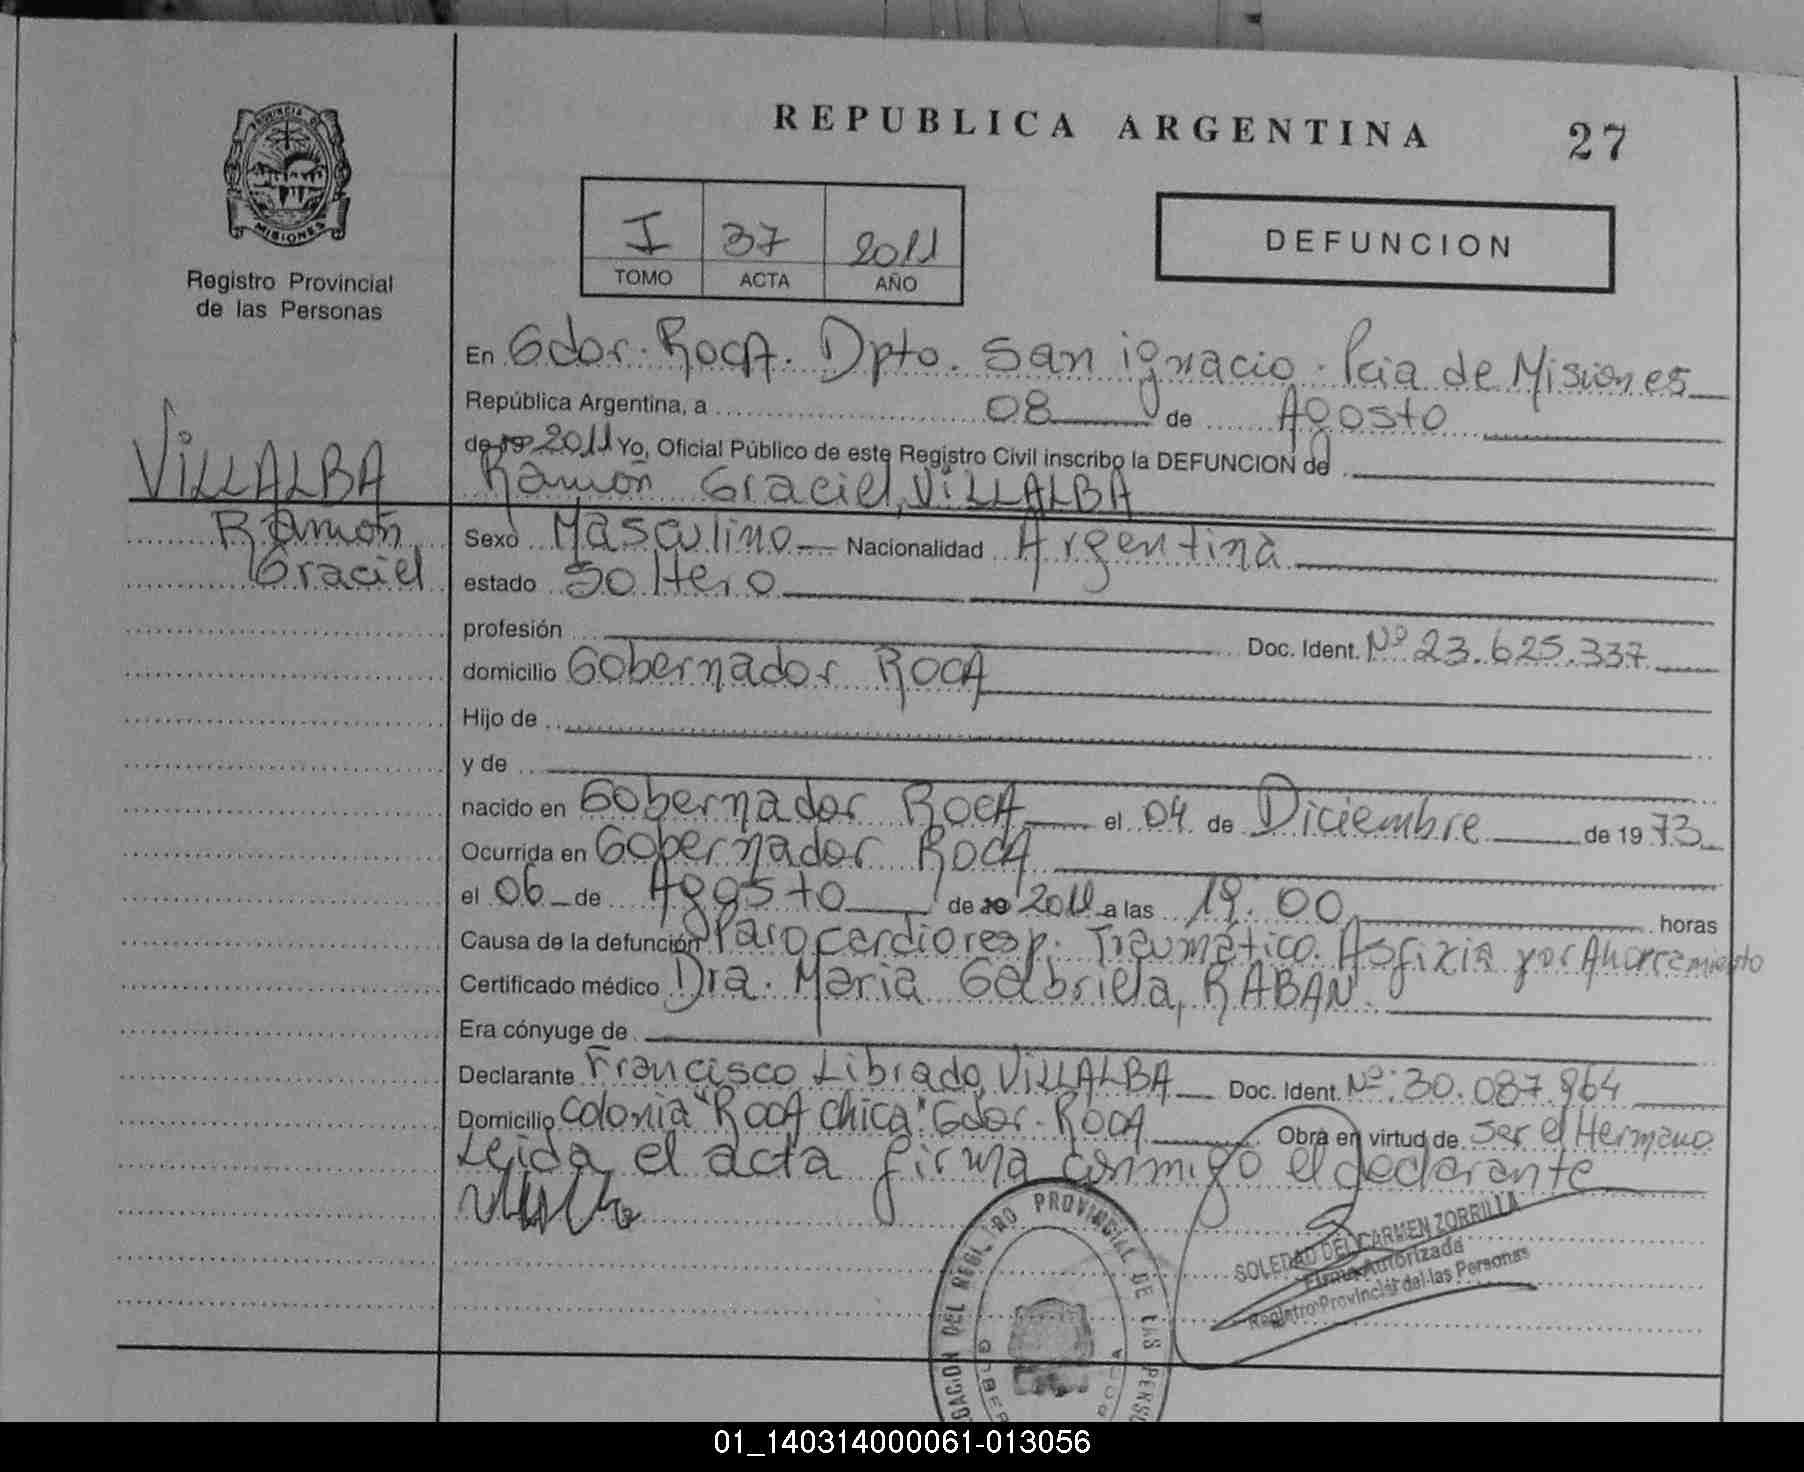 REPUBLICA ARGENTINA
27
PROVINCIA DE
MISIONES
Registro Provincial
de las Personas
I 37 2011
TOMO ACTA AÑO
DEFUNCION
En Gdor. Roca. Dpto. San ignacio. Pcia de Misiones
República Argentina, a 08 de Agosto
de 19 2011 Yo, Oficial Público de este Registro Civil inscribo la DEFUNCION de
Ramón Graciel, ViLLALBA
ViLLALBA
Ramón
Graciel
Sexo Masculino Nacionalidad Argentina
estado Soltero
profesión Doc. Ident. Nº 23.625.337
domicilio Gobernador Roca
Hijo de
y de
nacido en Gobernador Roca el 04 de Diciembre de 1973
Ocurrida en Gobernador Roca
el 06 de Agosto de 19 2011 a las 19:00 horas
Causa de la defunción Paro cardioresp. Traumático. Asfixia por Ahorcamiento
Certificado médico Dra. Maria Gabriela, RABAN
Era cónyuge de
Declarante Francisco Librado, ViLLALBA Doc. Ident. Nº: 30.087.964
Domicilio Colonia "Roca Chica" Gdor. Roca Obra en virtud de Ser el Hermano
Leida el acta firma conmigo el declarante
REGISTRO PROVINCIAL DE LAS
SOLEDAD DEL CARMEN ZORRILLA
Firma Autorizada
Registro Provincial de las Personas
01_140314000061-013056